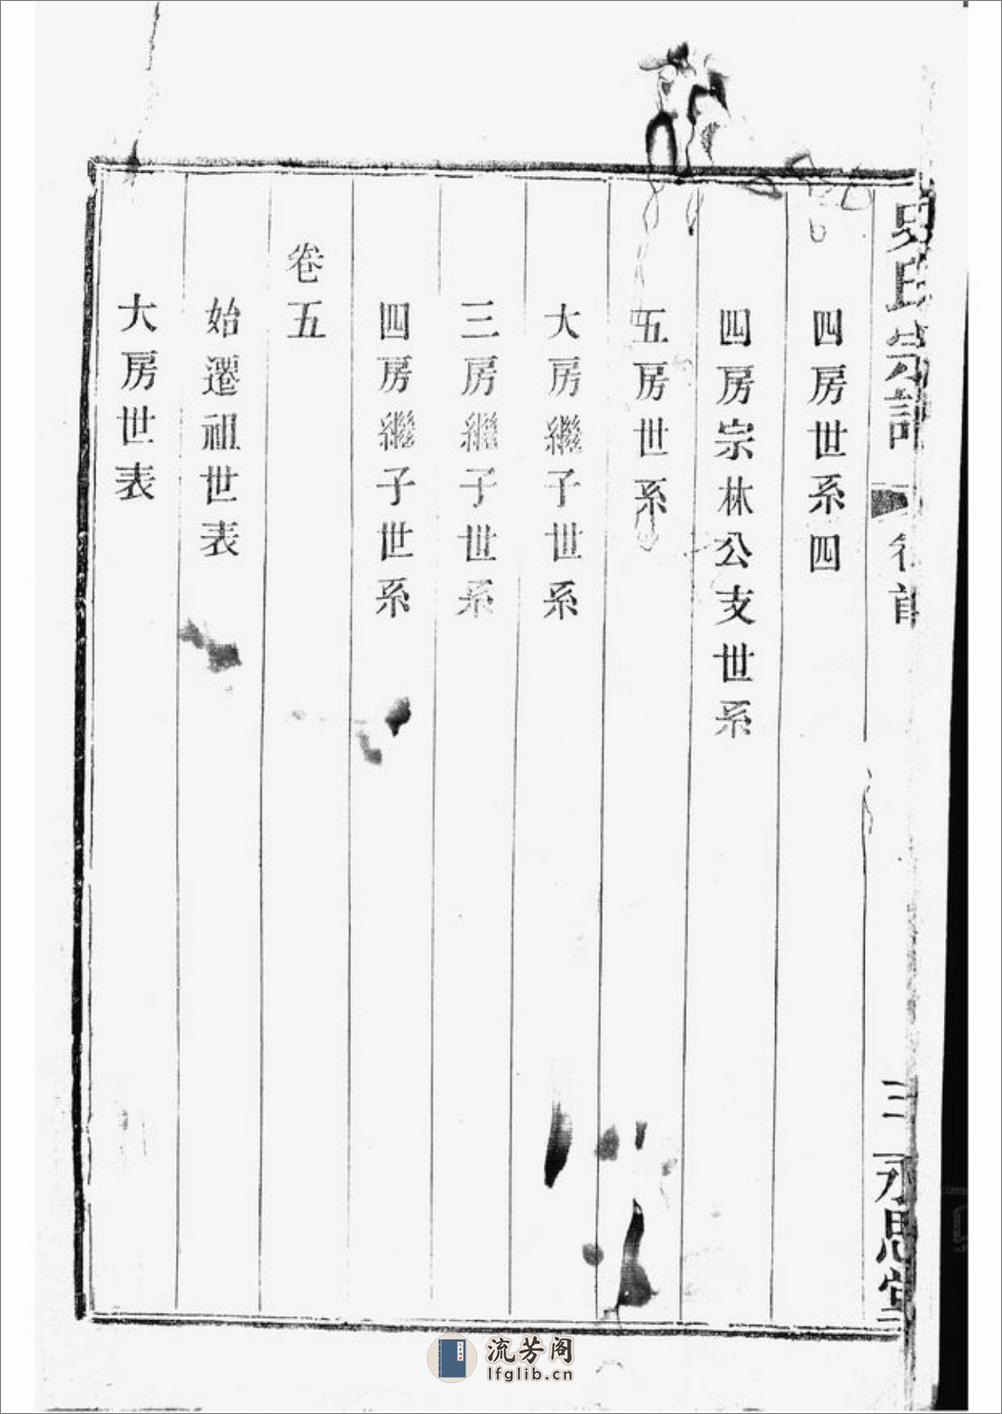 氏宗譜
卷首
三
永思堂
四房世系四
四房宗林公支世系
五房世系
大房繼子世系
三房繼子世系
四房繼子世系
卷五
始遷祖世表
大房世表
流芳阁
lfglib.cn